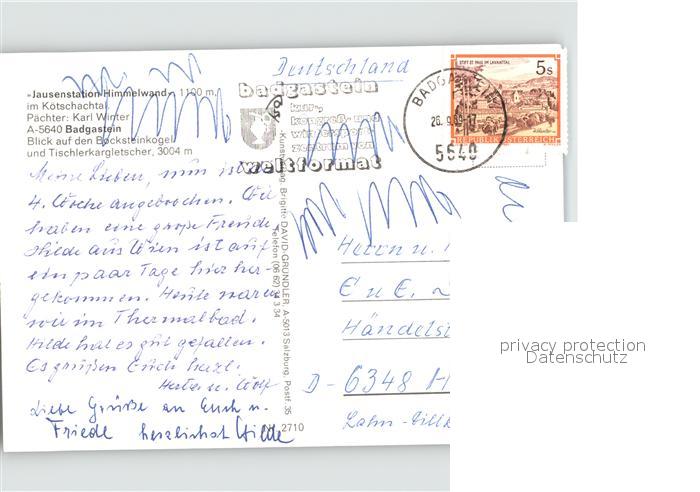 »Jausenstation Himmelwand«, 1100 m,
im Kötschachtal
Pächter: Karl Winter
A-5640 Badgastein
Blick auf den Bocksteinkogel
und Tischlerkargletscher, 3004 m
Meine Lieben, nun ist
4. Woche angebrochen. Wir
haben eine große Freude
Hilde aus Wien ist auf
ein paar Tage hier her-
gekommen. Heute waren
wir im Thermalbad.
Hilde hat es gut gefallen.
Es grüßen Euch herzl.
u. Wolf
Liebe Grüße an Euch u.
Friedl herzlichst Hilde
Deutschland
badgastein
kur-,
kongreß- und
wintersport-
zentrum von
weltformat
BADGASTEIN
26. 9.89-17
5640
STIFT ST. PAUL IM LAVANTTAL
5s
REPUBLIK ÖSTERREICH
Brigitte DAVID-GRÜNDLER, A-5013 Salzburg, Postf. 35
Telefon (06 62)
2710
Herrn u.
E u E.
Händelst
D- 6348 H
Lahn-Dillk
privacy protection
Datenschutz